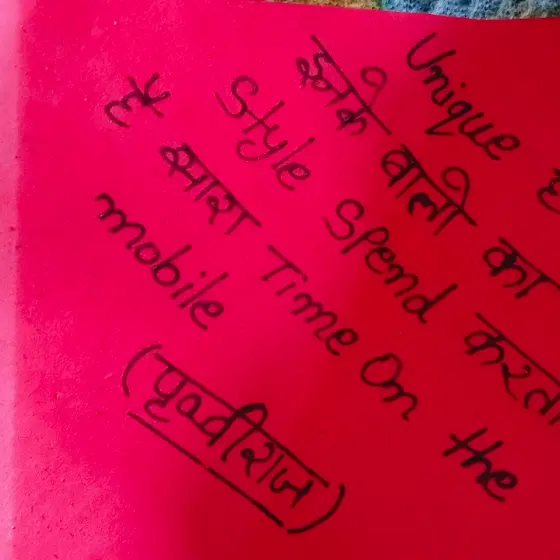 Unique है
इनके वालो का
Style Spend करता
है सारा Time On the
mobile
(पृथ्वीराज)